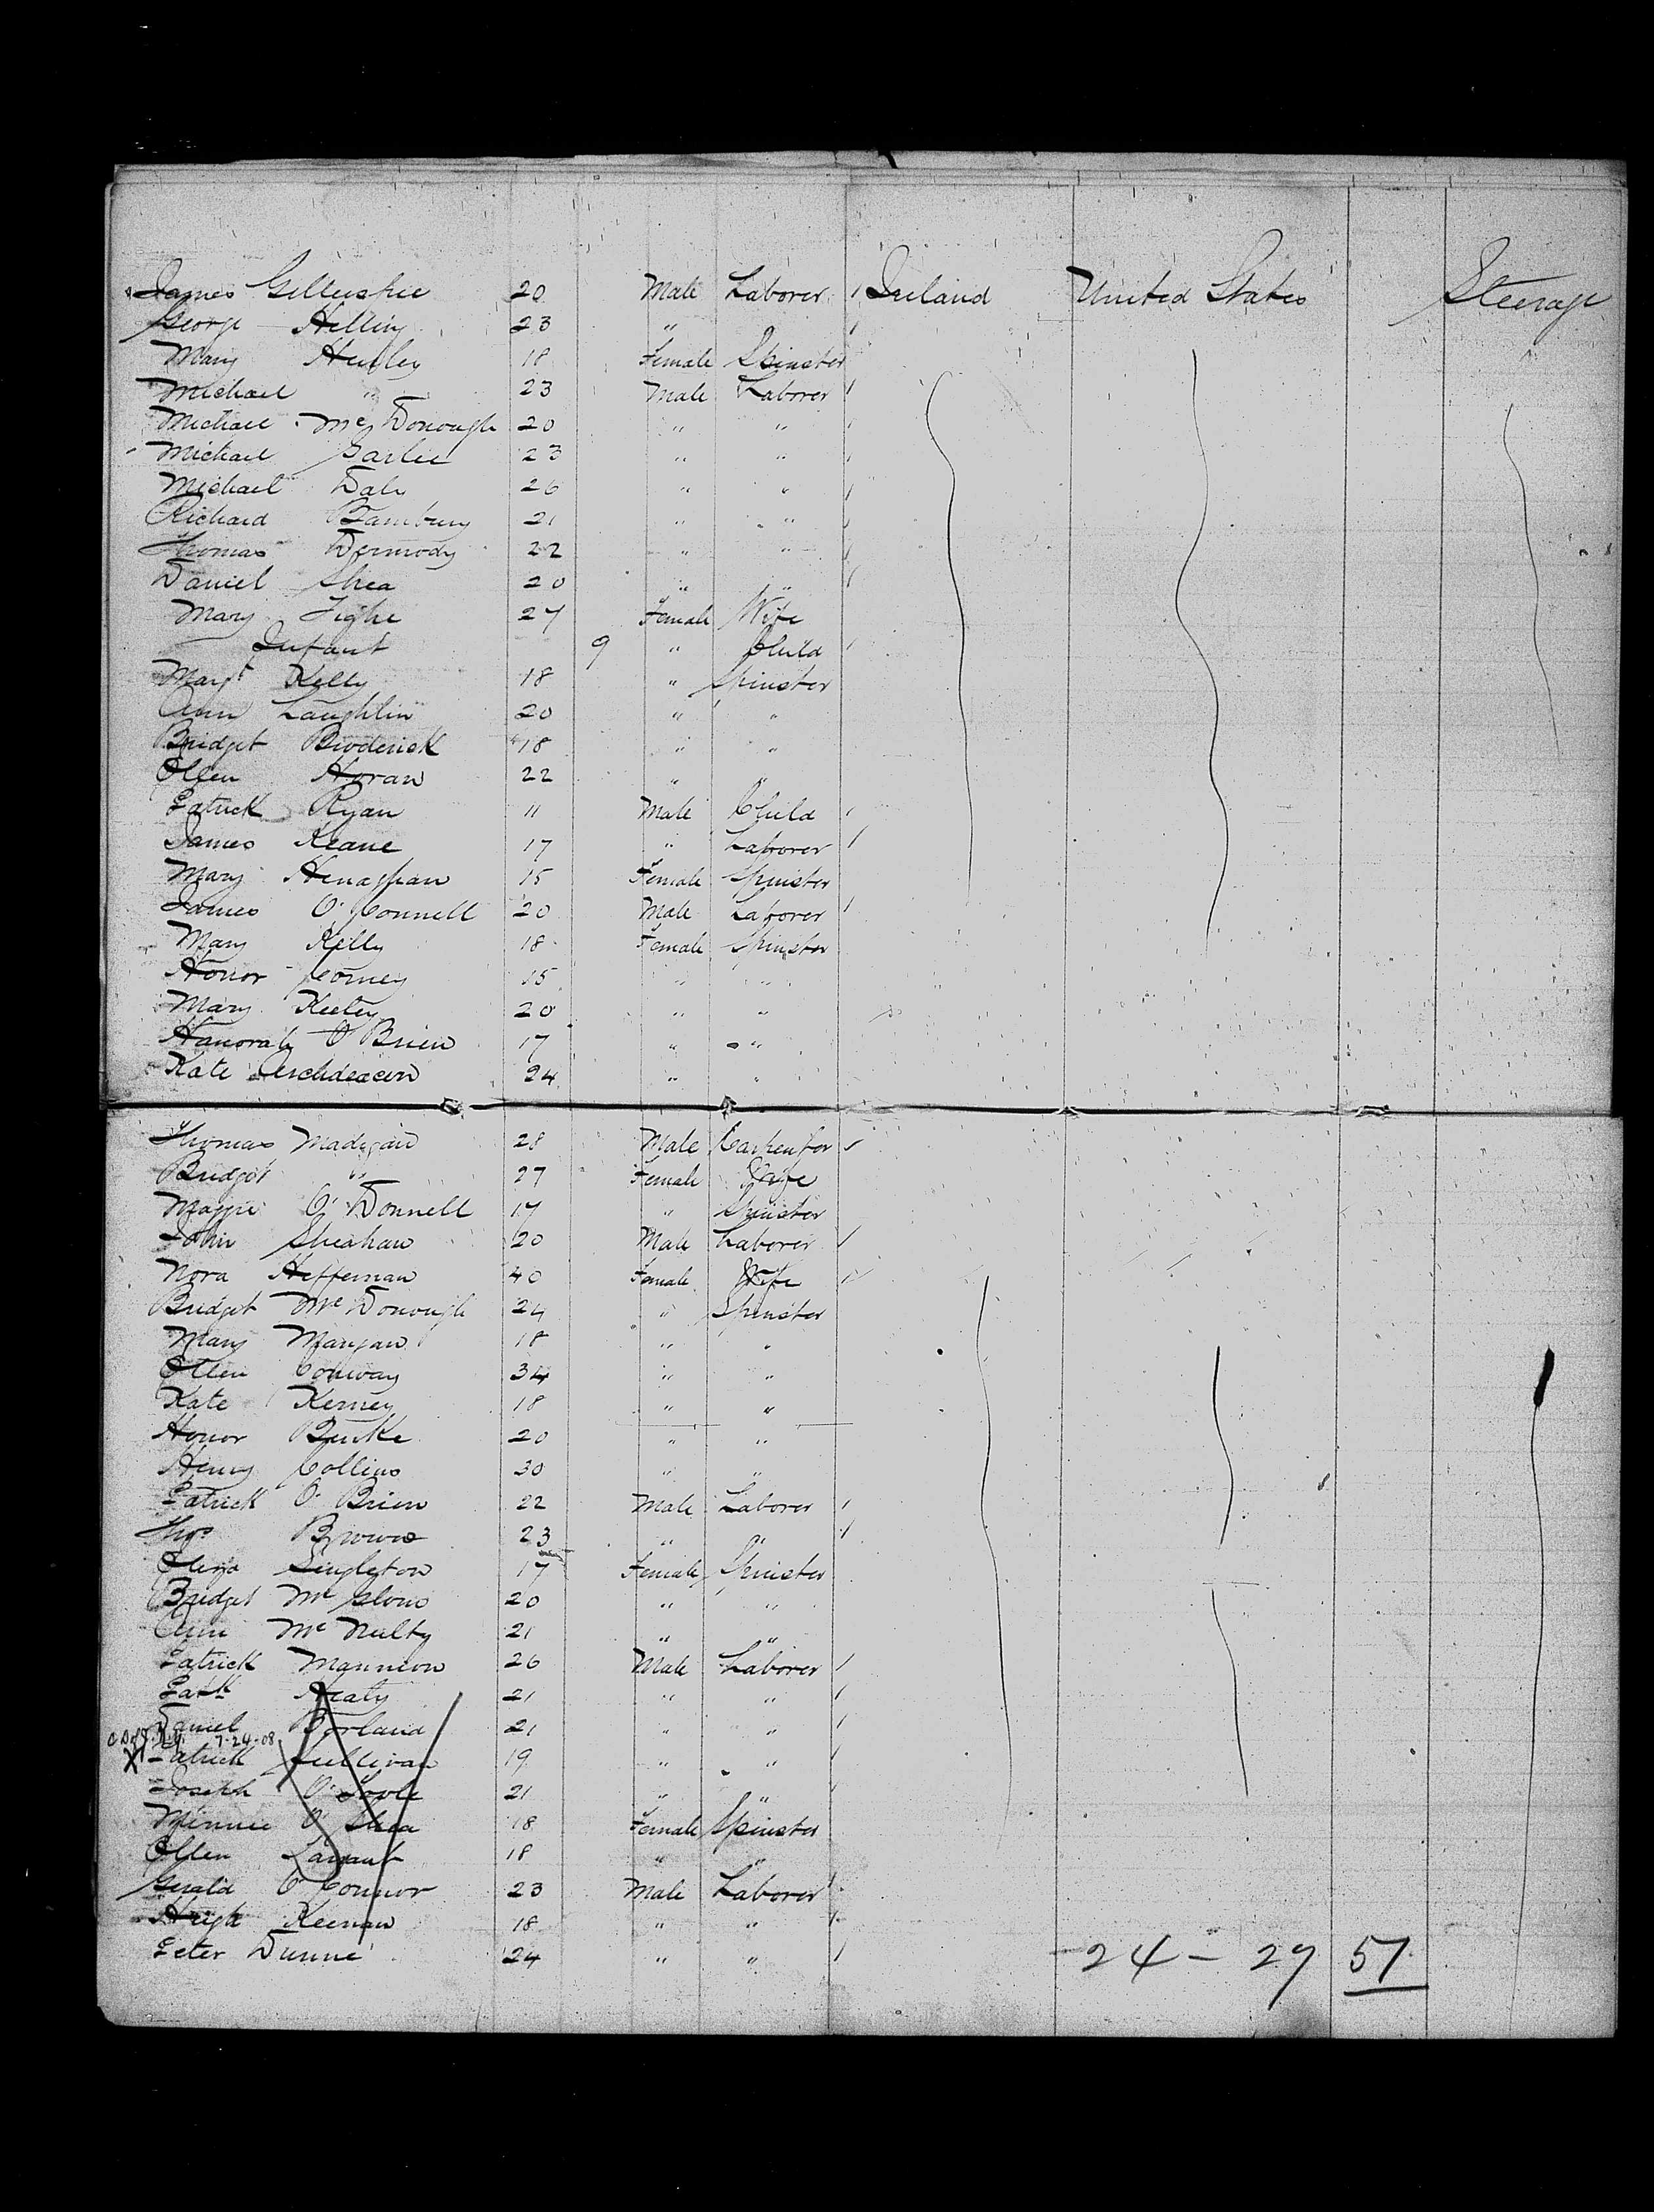 James Gilleskie 20 Male Laborer Ireland United States Steerage
George Helling 23 "
Mary Hurley 18 Female Spinster
Michael " 23 Male Laborer
Michael McDonough 20 " "
Michael 23 " "
Michael Daly 26 " "
Richard Bambury 21 " "
Thomas Dermody 22 " "
Daniel Shea 20 " "
Mary Tighe 27 Female Wife
Infant 9 " Child
Margt Kelly 18 " Spinster
Ann Laughlin 20 " "
Bridget Broderick 18 " "
Ellen Horan 22 " "
Patrick Ryan 11 Male Child
James Keane 17 " Laborer
Mary Henaghan 15 Female Spinster
James O'Connell 20 Male Laborer
Mary Kelly 18 Female Spinster
Honor Corney 15 " "
Mary Keeley 20 " "
Hanorah O'Brien 17 " "
Kate Archdeacon 24 " "
Thomas Madigan 28 Male Carpenter
Bridget " 27 Female Wife
Maggie O'Donnell 17 " Spinster
John Sheahan 20 Male Laborer
Nora Heffernan 40 Female Wife
Bridget McDonough 24 " Spinster
Mary Mangan 18 " "
Ellen Conway 34 " "
Kate Kerney 18 " "
Honor Burke 20 " "
Henry Collins 30 " "
Patrick O'Brien 22 Male Laborer
Thos Browne 23 " "
Eliza Singleton 17 Female Spinster
Bridget McGlone 20 " "
Ann McNulty 21 " "
Patrick Mannion 26 Male Laborer
Patk Healy 21 " "
Daniel Borland 21 " "
7-24-08
Patrick Sullivan 19 " "
Joseph O'Toole 21 " "
Minnie O'Shea 18 Female Spinster
Ellen 18 " "
Gerald O'Connor 23 Male Laborer
Hugh Keenan 18 " "
Peter Dunne 24 " "
24 - 27 51